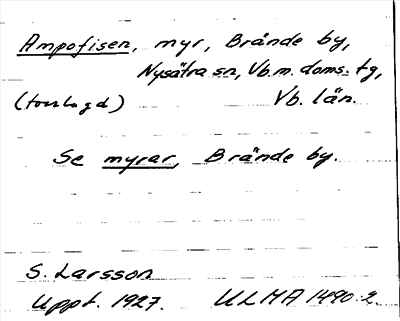 Ampofisen, myr, Brände by,
Nysätra sn, Vb.m. doms. tg,
(torrlagd) Vb. län.
Se myrar, Brände by.
S. Larsson
Uppt. 1927. ULMA 1490:2.